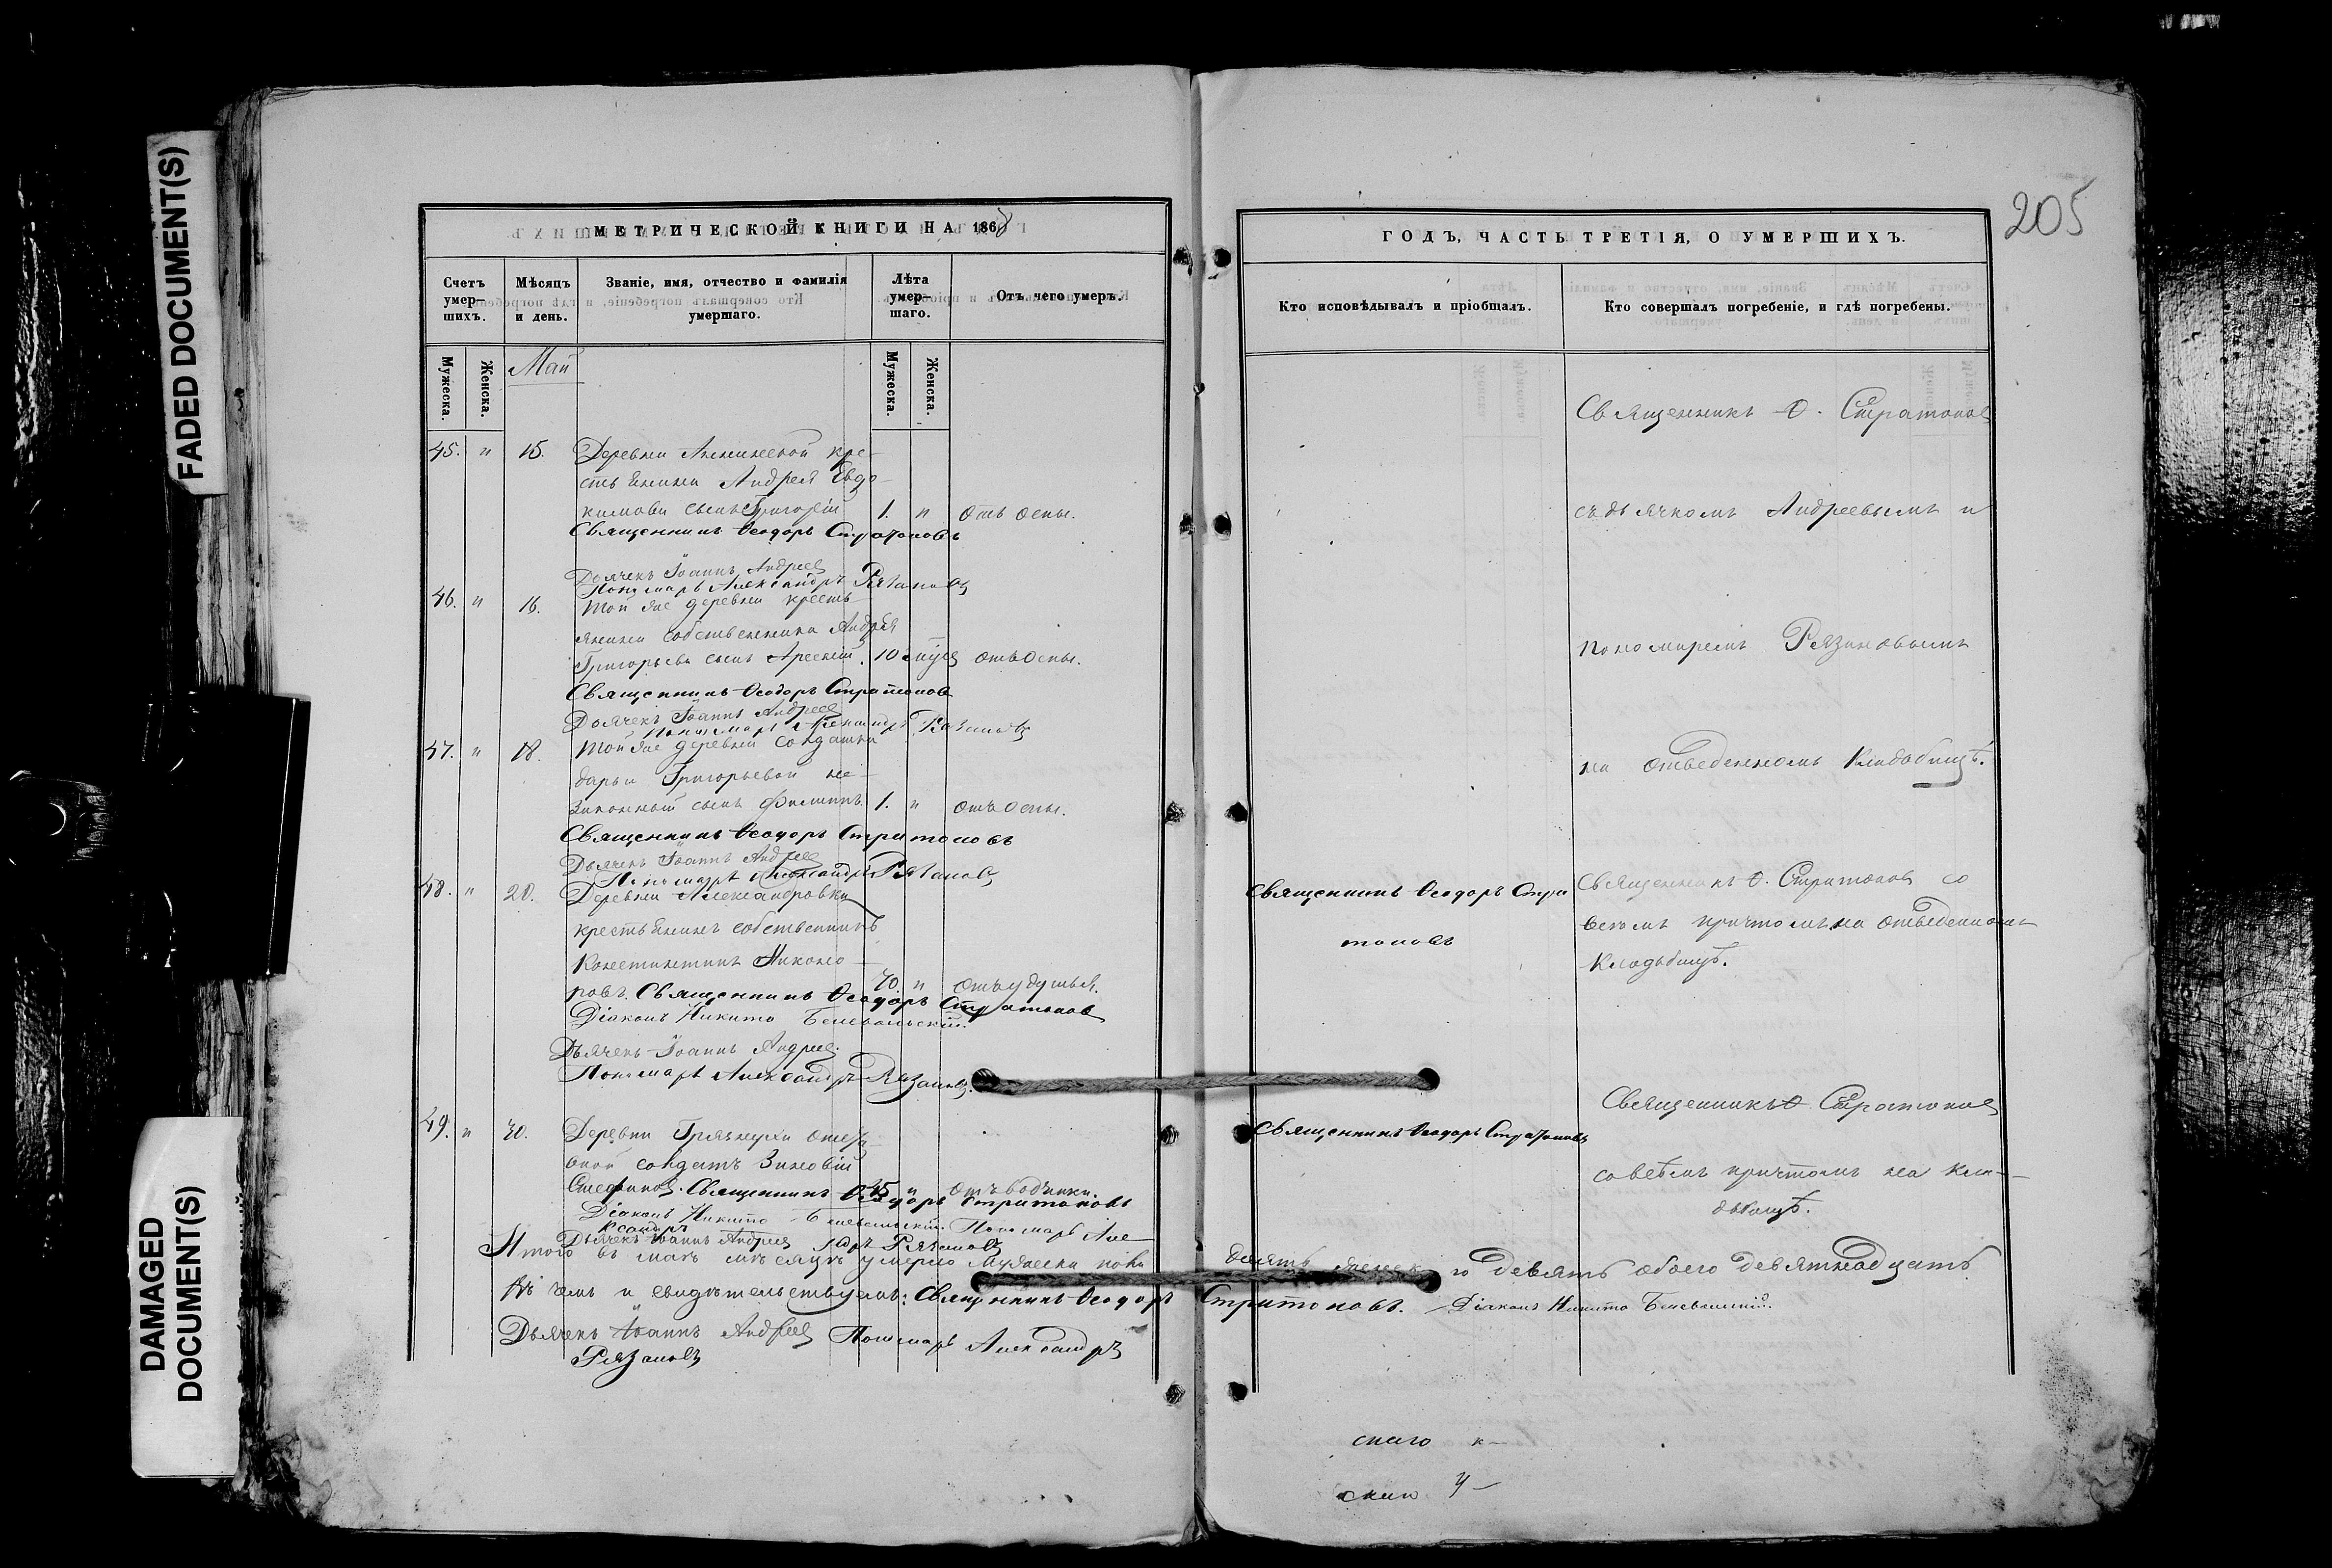 FADED DOCUMENT(S)
DAMAGED
DOCUMENT(S)
205
МЕТРИЧЕСКОЙ КНИГИ НА 1868
Счетъ умер-шихъ.
Мѣсяцъ и день.
Званіе, имя, отчество и фамилія умершаго.
Лѣта умер-шаго.
Отъ чего умеръ.
Мужеска.
Женска.
Май
Мужеска.
Женска.
45. " 15. Деревни Аненковой кре-
стьянина Андрея Евдо-
кимова сынъ Григорій 1. " отъ оспы.
Священникъ Ѳеодоръ Стратоновъ
Дьячекъ Іоаннъ Андреевъ
Пономарь Александръ Рязановъ
46. " 16. Той же деревни кресть-
янина собственника Андрея
Григорьева сынъ Арсеній. 10 отъ оспы.
Священникъ Ѳеодоръ Стратоновъ
Дьячекъ Іоаннъ Андреевъ
Пономарь Александръ Рязановъ
47. " 18. Той же деревни солдатки
Дарьи Григорьевой не-
законный сынъ Филиппъ 1. " отъ оспы.
Священникъ Ѳеодоръ Стратоновъ
Дьячекъ Іоаннъ Андреевъ
Пономарь Александръ Рязановъ
48. " 20. Деревни Александровки
крестьянинъ собственникъ
Константинъ Никоно-
ровъ. 70. " отъ удушья.
Священникъ Ѳеодоръ Стратоновъ
Діаконъ Никита
Дьячекъ Іоаннъ Андреевъ.
Пономарь Александръ Рязановъ.
49. " 30. Деревни Грязнухи
солдатъ Зиновій
Стефановъ. " отъ водянки.
Священникъ Ѳеодоръ Стратоновъ
Діаконъ Никита Пономарь Але-
ксандръ
Дьячекъ Іоаннъ Андреевъ Рязановъ
Итого въ маѣ мѣсяцѣ умерло мужеска пола
Въ чемъ и свидѣтельствуемъ: Священникъ Ѳеодоръ
Дьячекъ Іоаннъ Андреевъ Пономарь Александръ
Рязановъ
ГОДЪ, ЧАСТЬ ТРЕТІЯ, О УМЕРШИХЪ.
Кто исповѣдывалъ и пріобщалъ.
Кто совершалъ погребеніе, и гдѣ погребены.
Священникъ Ѳ. Стратоновъ
съ дьячкомъ Андреевымъ и
пономаремъ Рязановымъ
на отведенномъ кладбищѣ.
Священникъ Ѳеодоръ Стра
тоновъ
Священникъ Ѳ. Стратоновъ со
всѣмъ причтомъ на отведенномъ
кладбищѣ.
Священникъ Ѳеодоръ Стратоновъ
Священникъ Ѳ. Стратоновъ
со всѣмъ причтомъ на кла-
дбищѣ.
десять девять обоего девятнадцать
Стратоновъ. Діаконъ Никита